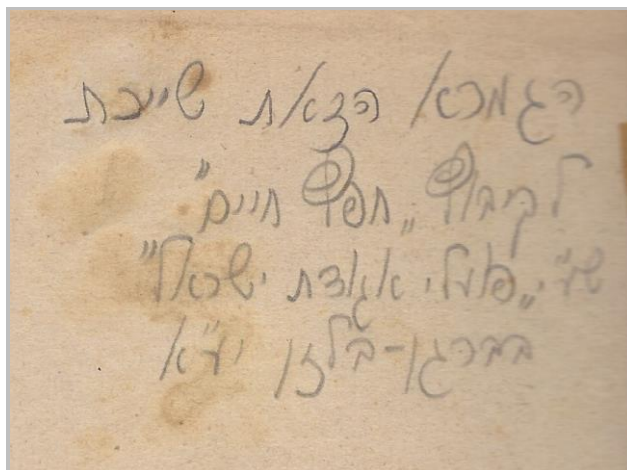 הגמרא הזאת שייכת
לקיבוץ „חפץ חיים"
שע"י „פועלי אגודת ישראל"
בברגן-בלזן יע"א